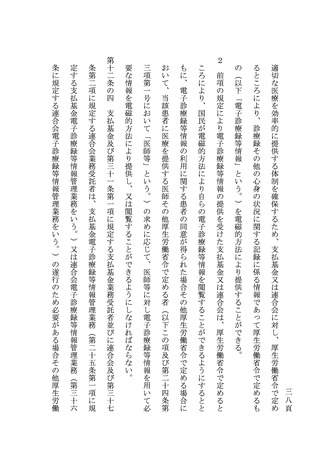 三八頁
適切な医療を効率的に提供する体制を確保するため、支払基金又は連合会に対し、厚生労働省令で定め
るところにより、診療録その他の心身の状況に関する記録に係る情報であって厚生労働省令で定めるも
の（以下「電子診療録等情報」という。）を電磁的方法により提供することができる。
２　前項の規定により電子診療録等情報の提供を受けた支払基金又は連合会は、厚生労働省令で定めると
ころにより、国民が電磁的方法により自らの電子診療録等情報を閲覧することができるようにするとと
もに、電子診療録等情報の利用に関する患者の同意が得られた場合その他厚生労働省令で定める場合に
おいて、当該患者に医療を提供する医師その他厚生労働省令で定める者（以下この項及び第二十四条第
三項第一号において「医師等」という。）の求めに応じて、医師等に対し電子診療録等情報を用いて必
要な情報を電磁的方法により提供し、又は閲覧することができるようにしなければならない。
第十二条の四　支払基金及び第三十一条第一項に規定する支払基金業務受託者並びに連合会及び第三十七
条第二項に規定する連合会業務受託者は、支払基金電子診療録等情報管理業務（第二十五条第一項に規
定する支払基金電子診療録等情報管理業務をいう。）又は連合会電子診療録等情報管理業務（第三十六
条に規定する連合会電子診療録等情報管理業務をいう。）の遂行のため必要がある場合その他厚生労働